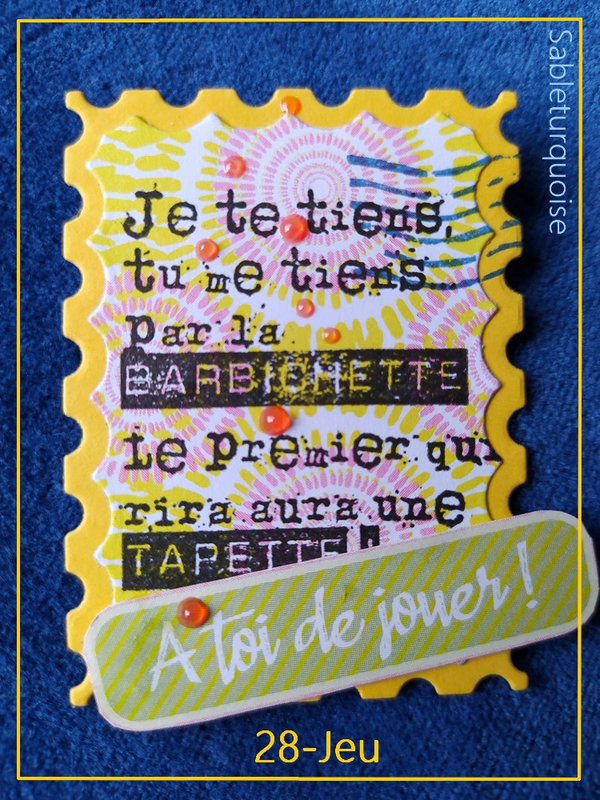 Sableturquoise
Je te tiens,
tu me tiens...
par la
BARBICHETTE
Le premier qui
rira aura une
TAPETTE !
A toi de jouer !
28-Jeu